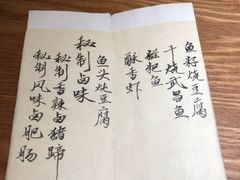 鱼籽烧豆腐
干烧武昌鱼
糍粑鱼
酥香虾
鱼头炖豆腐
秘制卤味
秘制香辣卤猪蹄
秘制风味卤肥肠